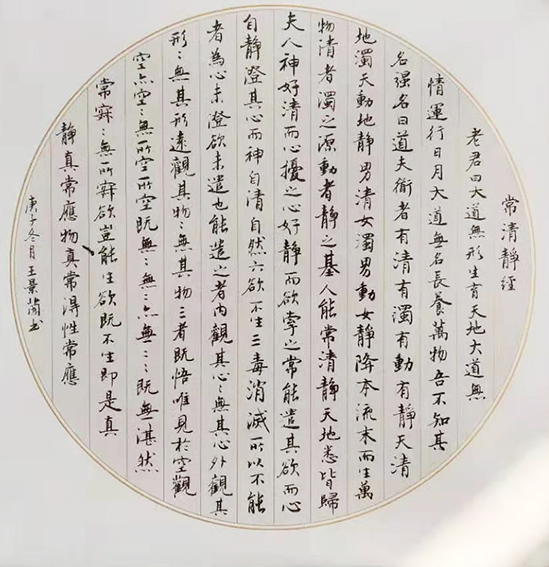 常清静經
老君曰大道無形生育天地大道無
情運行日月大道無名長養萬物吾不知其
名强名曰道夫衜者有清有濁有動有静天清
地濁天動地静男清女濁男動女静降本流末而生萬
物清者濁之源動者静之基人能常清静天地悉皆歸
夫人神好清而心擾之心好静而欲牽之常能遣其欲而心
自静澄其心而神自清自然六欲不生三毒消滅所以不能
者為心未澄欲未遣也能遣之者内觀其心〻無其心外觀其
形〻無其形遠觀其物〻無其物三者既悟唯見於空觀
空亦空〻無所空所空既無〻無〻亦無〻〻既無湛然
常寂〻無所寂欲豈能生欲既不生即是真
静真常應物真常得性常應
庚子冬月王景蘭书